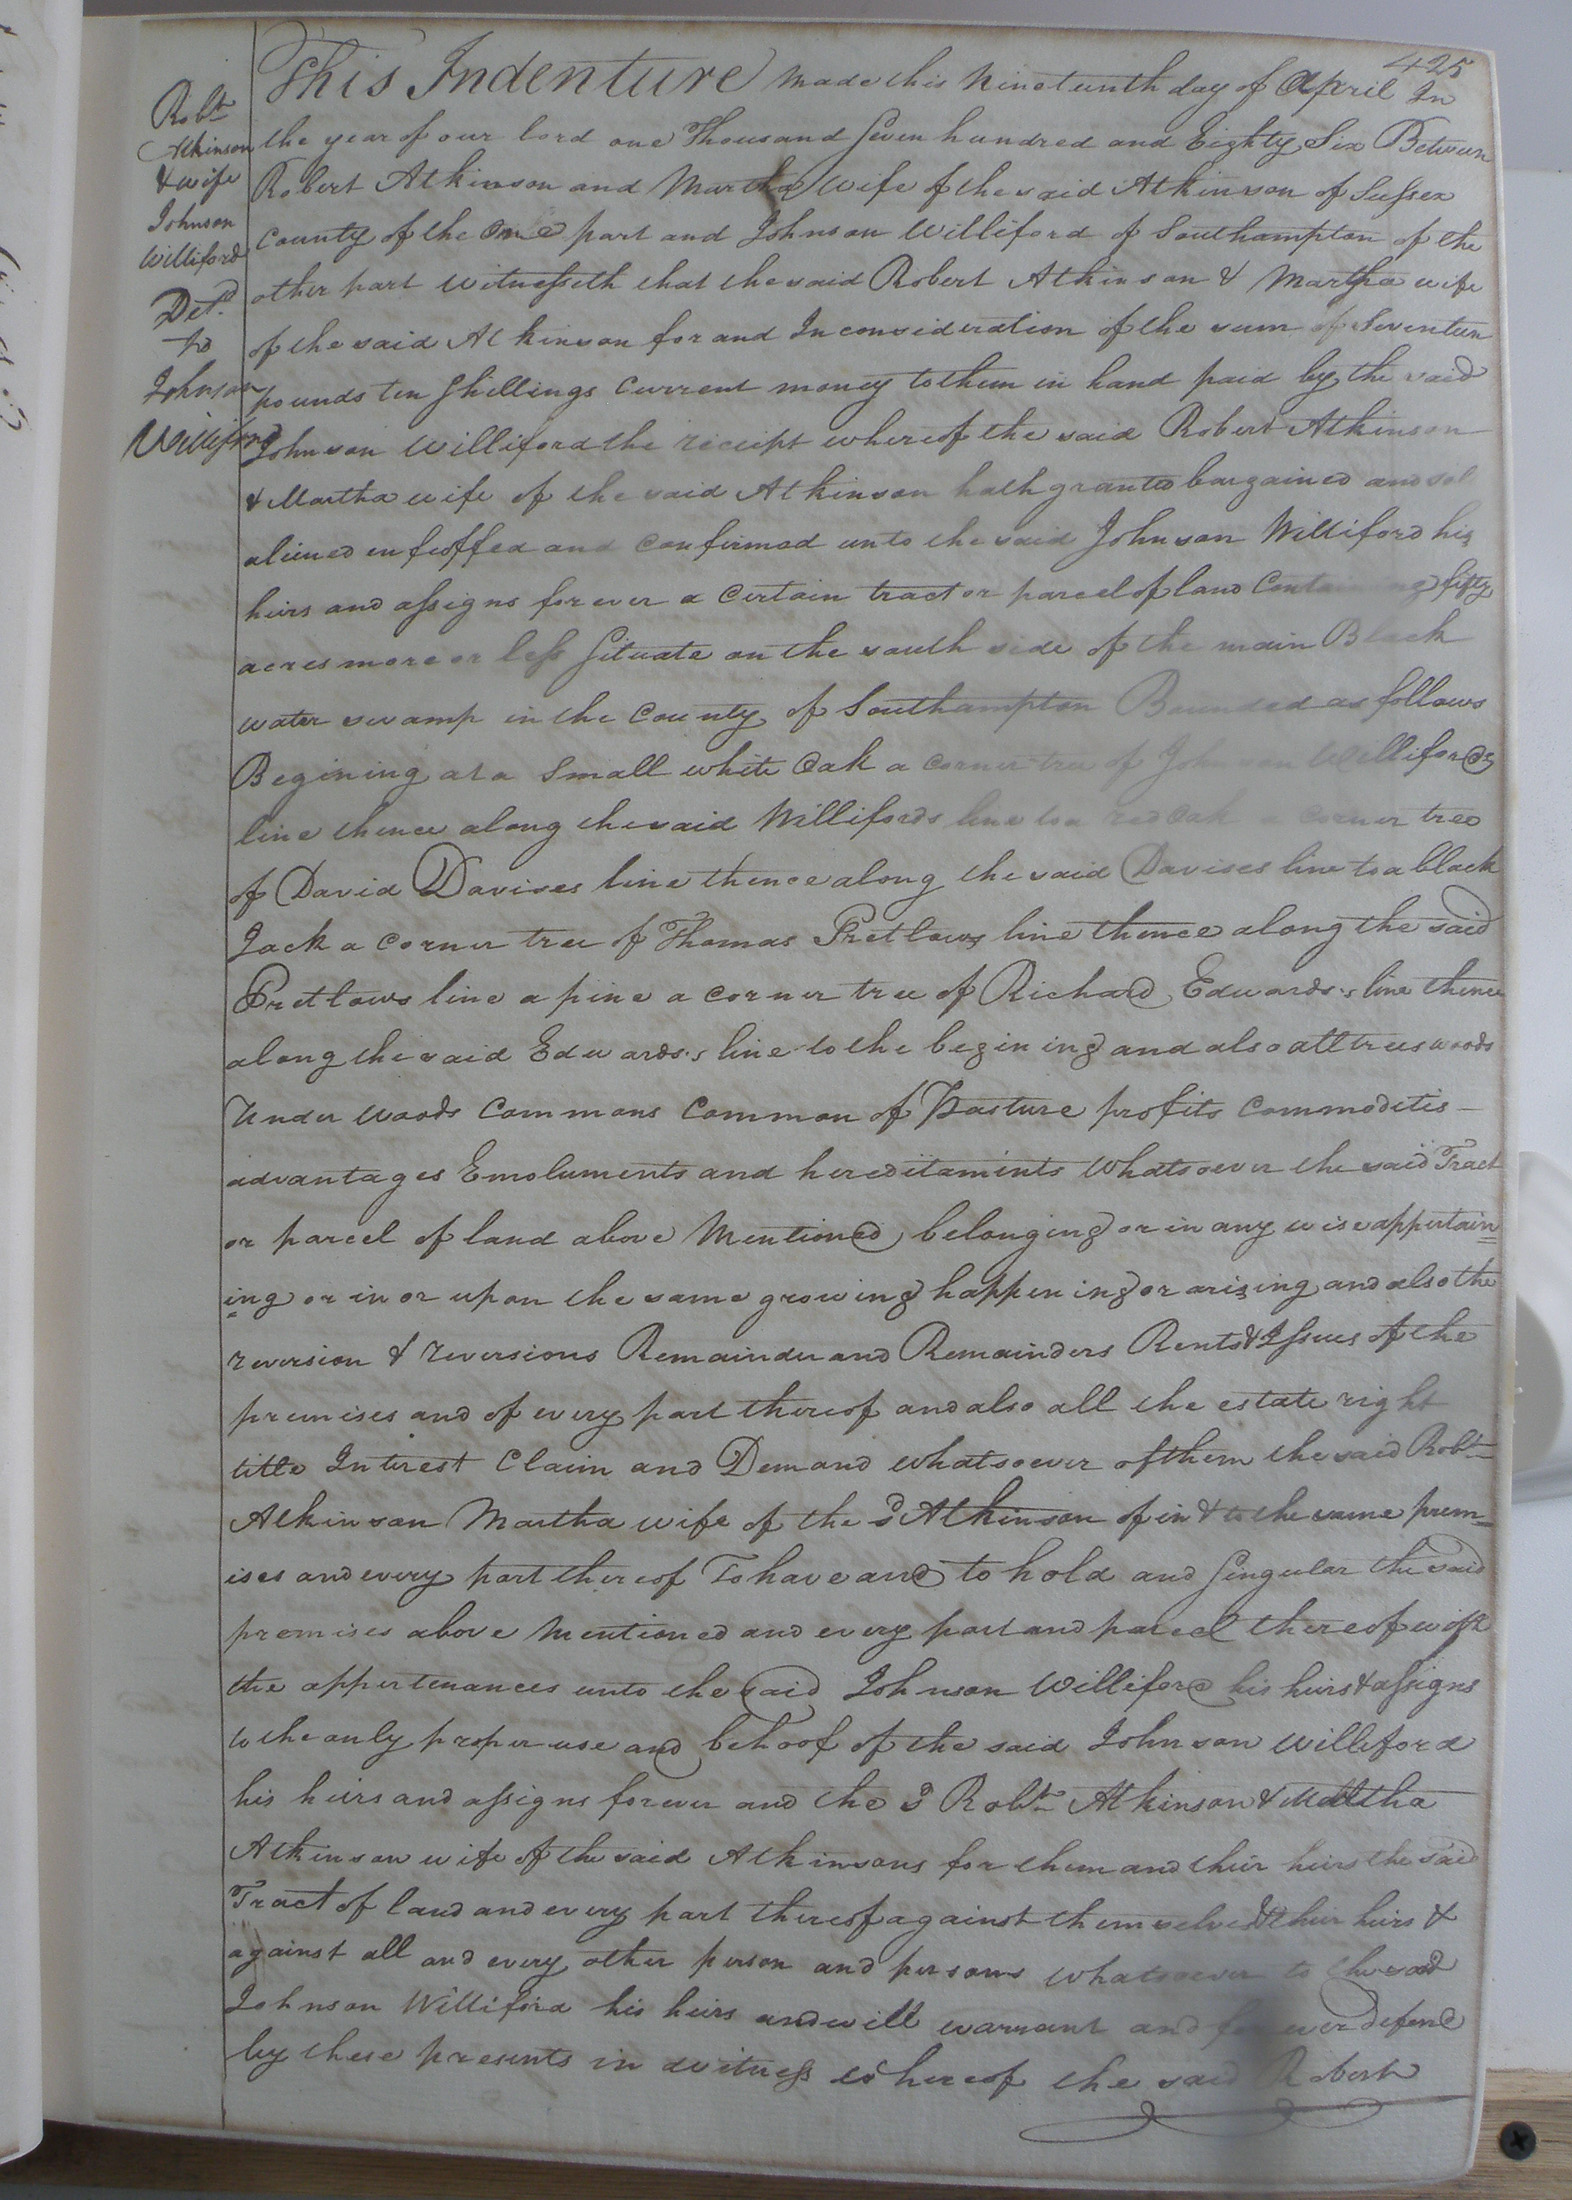 425
Robt
Atkinson
& wife
Johnson
Williford
Deld
to
Johnson
Williford
This Indenture made this Nineteenth day of April In
the year of our lord one Thousand Seven hundred and Eighty Six Between
Robert Atkinson and Martha wife of the said Atkinson of Sussex
County of the One part and Johnson Williford of Southampton of the
other part witnesseth that the said Robert Atkinson & Martha wife
of the said Atkinson for and In consideration of the sum of Seventeen
pounds ten Shillings Current money to them in hand paid by the said
Johnson Williford the receipt whereof the said Robert Atkinson
& Martha wife of the said Atkinson hath granted bargained and sol
aliened enfeoffed and confirmed unto the said Johnson Williford his
heirs and assigns forever a Certain tract or parcel of land Containing fifty
acres more or less Situate on the south side of the main Black
water swamp in the County of Southampton Bounded as follows
Begining at a Small white Oak a corner tree of Johnson Willifords
line thence along the said Willifords line to a red oak a corner tree
of David Davises line thence along the said Davises line to a black
Jack a corner tree of Thomas Pretlows line thence along the said
Pretlows line a pine a corner tree of Richard Edwards's line thence
along the said Edwards's line to the begining and also all trees woods
Under woods Commons Common of Pasture profits Commodetis
advantages Emoluments and hereditaments Whatsoever the said Tract
or parcel of land above Mentioned belonging or in any wise appertain=
=ing or in or upon the same growing happening or arising and also the
reversion & reversions Remainder and Remainders Rents & Issues of the
premises and of every part thereof and also all the estate right
title Interest Claim and Demand whatsoever of them the said Robt
Atkinson Martha wife of the sd Atkinson of in & to the same prem=
ises and every part thereof To have and to hold and Singular the said
premises above Mentioned and every part and parcel thereof with
the appertenances unto the said Johnson Williford his heirs & assigns
to the only proper use and behoof of the said Johnson Williford
his heirs and assigns forever and the sd Robt Atkinson & Martha
Atkinson wife of the said Atkinsons for them and their heirs the said
Tract of land and every part thereof against themselves & their heirs &
against all and every other person and persons whatsoever to the said
Johnson Williford his heirs and will warrant and forever defend
by these presents in witness whereof the said Robert